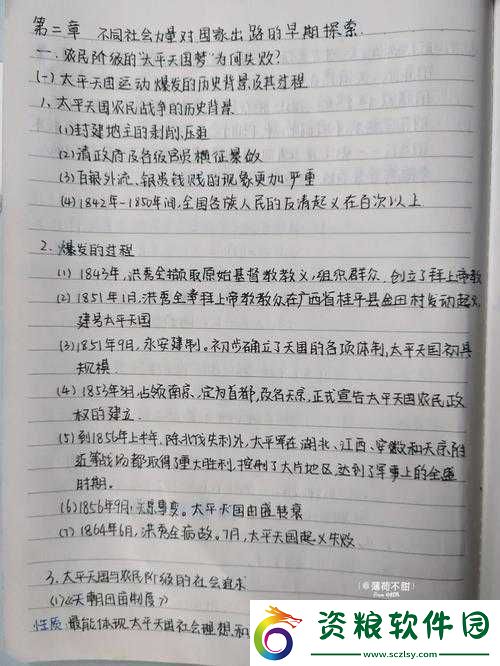 第二章 不同社会力量对国家出路的早期探索
一. 农民阶级的"太平天国梦"为何失败?
(一) 太平天国运动爆发的历史背景及其过程
1. 太平天国农民战争的历史背景
(1) 封建地主的剥削、压迫
(2) 清政府及各级官员横征暴敛
(3) 白银外流、银贵钱贱的现象更加严重
(4) 1842年-1850年间,全国各族人民的反清起义在百次以上
2. 爆发的过程
(1) 1843年,洪秀全撷取原始基督教教义,组织群众,创立了拜上帝教
(2) 1851年1月,洪秀全率拜上帝教教众在广西省桂平县金田村发动起义,
建号太平天国
(3) 1851年9月,永安建制。初步确立了天国的各项体制,太平天国初具
规模.
(4) 1853年3月,占领南京,定为首都,改名天京,正式宣告太平天国农民政
权的建立.
(5) 到1856年上半年,除北伐失利外,太平军在湖北、江西、安徽和天京附
近等战场都取得了重大胜利,控制了大片地区,达到了军事上的全盛
时期.
(6) 1856年9月,天京事变。太平天国由盛转衰
(7) 1864年6月,洪秀全病故。7月,太平天国起义失败.
3. 太平天国与农民阶级的社会追求
(1)《天朝田亩制度》
性质 最能体现太平天国社会理想和
薄荷不甜
资粮软件园
www.sczlsy.com